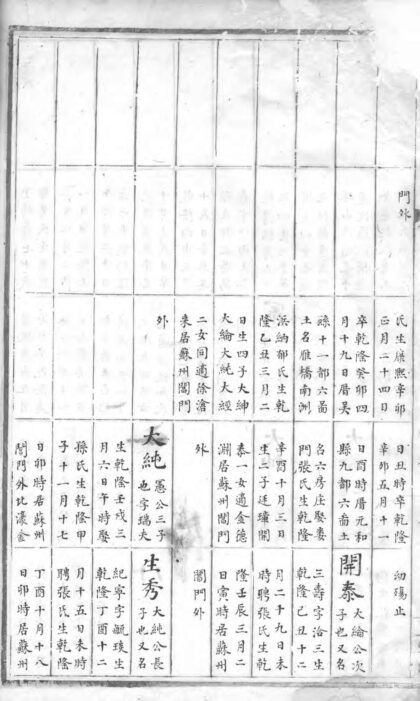 門外
氏生康熙辛卯
正月二十四日
卒乾隆癸卯四
月十九日厝吴
縣十一都六啚
土名雁橋南洲
浜納郁氏生乾
隆乙丑三月二
日生四子大紳
大綸大純大經
二女同適徐滄
来居蘇州閶門
外
日丑時卒乾隆
辛卯五月十一
日酉時厝元和
縣九都六啚土
名六房庄娶婁
門張氏生乾隆
辛酉十月三日
生二子廷璹開
泰一女金德
淵居蘇州閶門
外
大純
愚公三子
也字瑞夫
生乾隆壬戌三
月六日午時娶
孫氏生乾隆甲
子十一月十七
日卯時居蘇州
閶門外北濠金
幼殤止
開泰
大綸公次
子也又名
三壽字洽三生
乾隆乙丑十二
月二十九日未
時聘張氏生乾
隆壬辰三月二
日寅時居蘇州
閶門外
生秀
大純公長
子也又名
紀寧字毓琰生
乾隆丁酉十二
月十五日未時
聘張氏生乾隆
丁酉十月十八
日卯時居蘇州